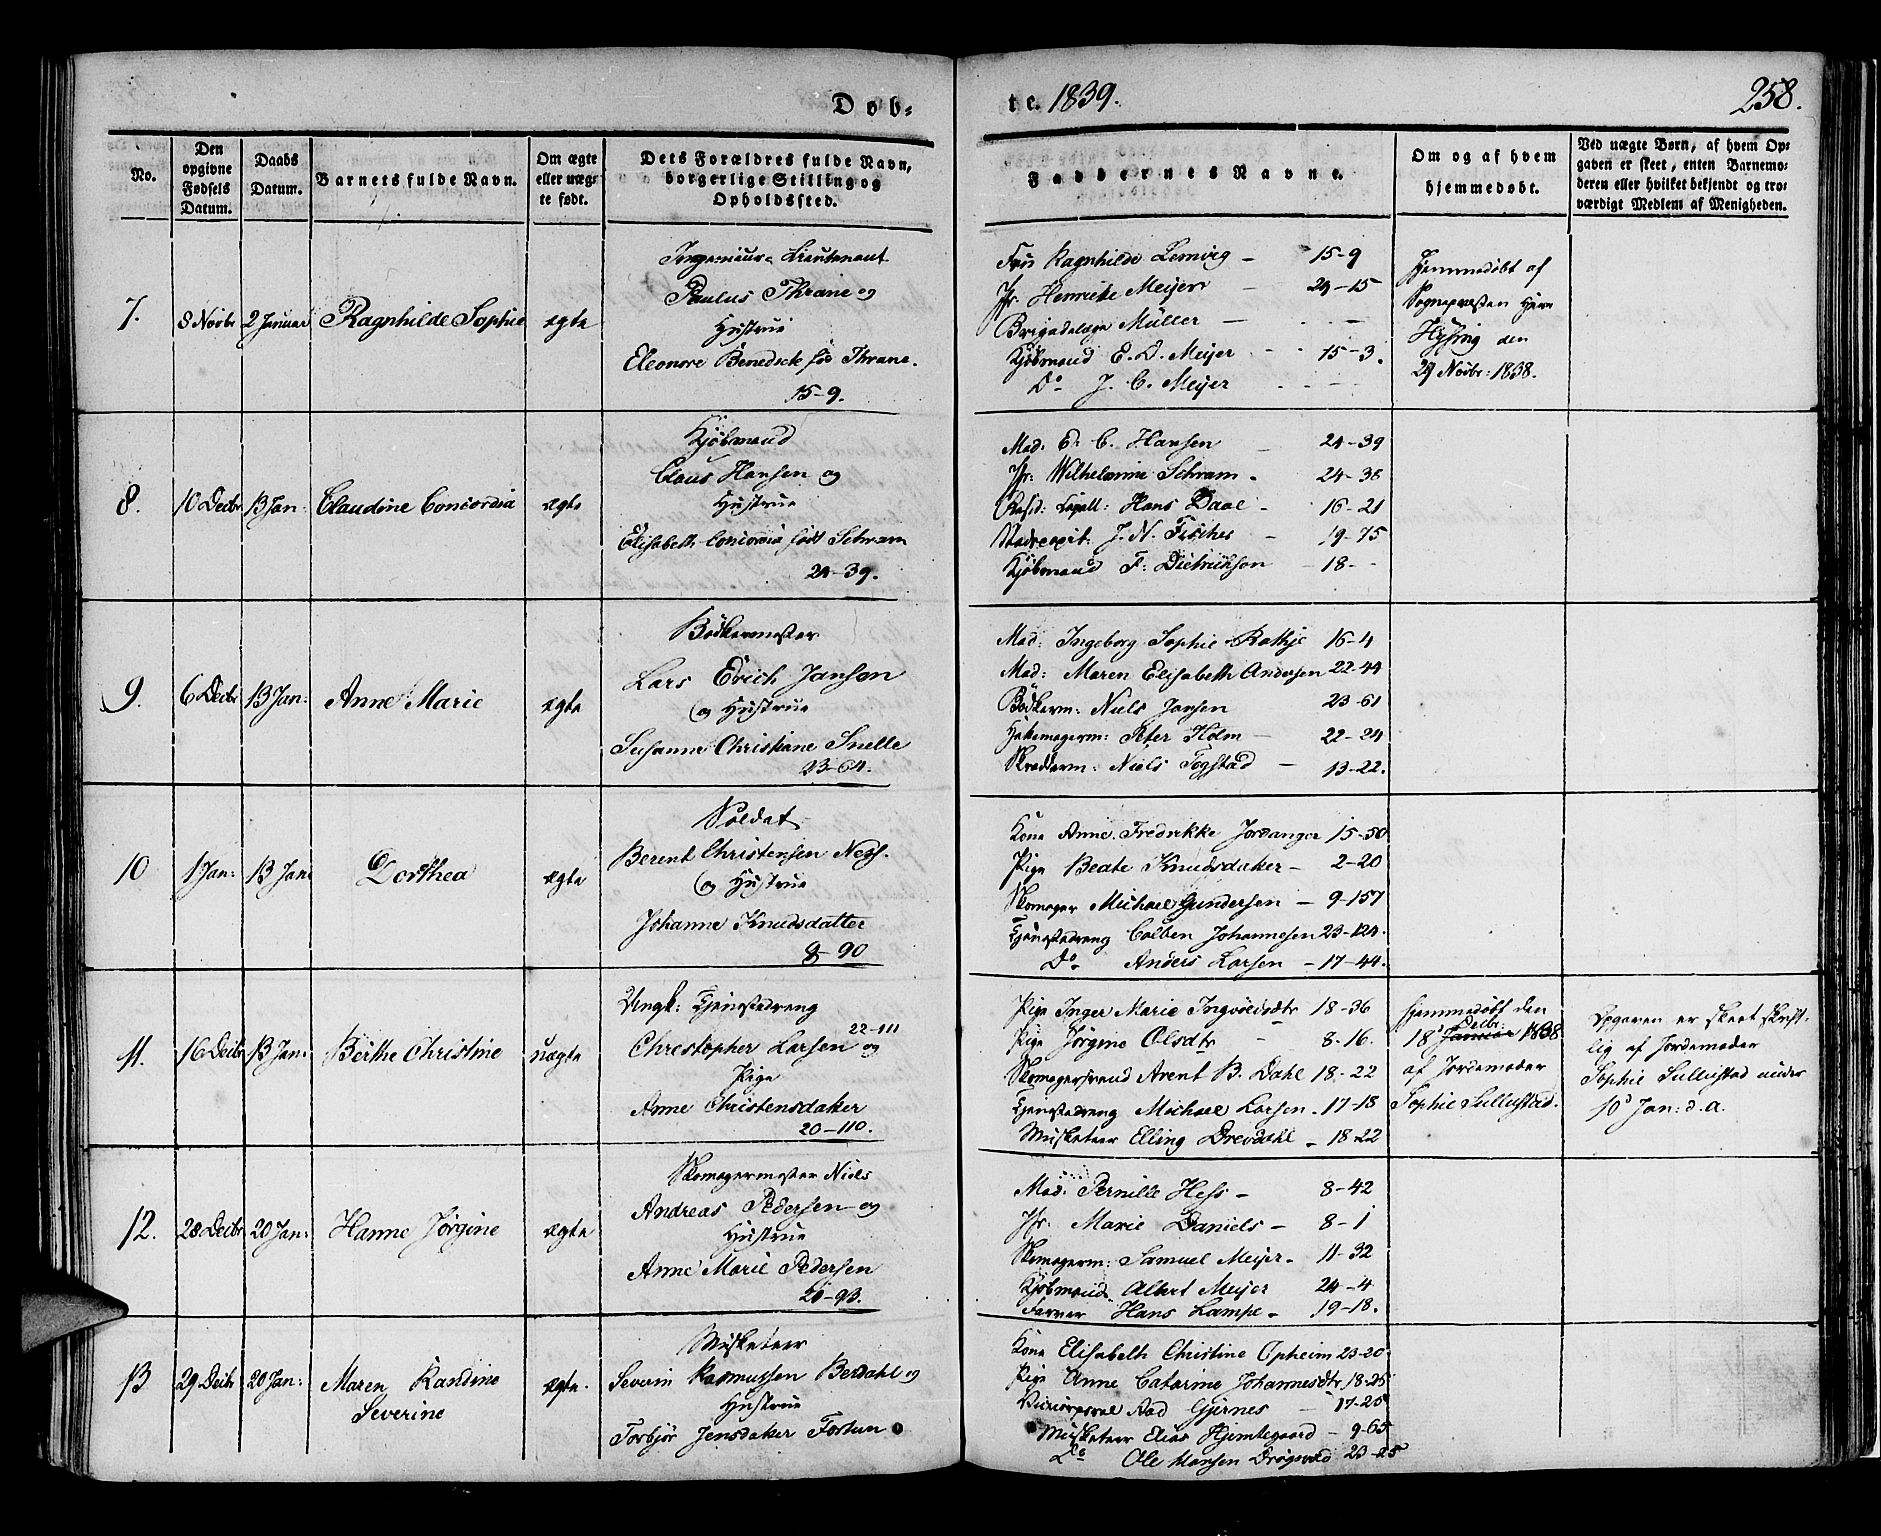 Døb-
te. 1839.
258.
No.
Den opgivne Fødsels Datum.
Daabs Datum.
Barnets fulde Navn.
Om ægte eller uægte født.
Dets Forældres fulde Navn, borgerlige Stilling og Opholdssted.
Faddernes Navne.
Om og af hvem hjemmedøbt.
Ved uægte Børn, af hvem Opgaven er skeet, enten Barnemoderen eller hvilket bekjendt og troværdigt Medlem af Menigheden.
7.
8 Novbr
2 Januar
Ragnhilde Sophie
ægte
Ingenieur-Lieutenant
Paulus Thrane og
Hustrue
Eleonore Benedicte fød Thrane.
15-9.
Frue Ragnhilde Lemvig - 15-9
Jfr. Henriette Meyer - 24-15
Brigadelæge Müller - - - -
Kjøbmand E. D. Meyer - 15-3.
Do J. C. Meyer - - -
Hjemmedøbt af
Sognepresten Herr
Hysing den
29 Novbr: 1838.
8.
10 Decbr
13 Jan:
Claudine Concordia
ægte
Kjøbmand
Claus Hansen og
Hustrue
Elisabeth Concordia født Schram
24-39.
Mad: E: C. Hansen - 24-39
Jfr: Wilhelmine Schram - 24-38
Hans Daae - 16-21
J. N. Fischer - 19-75
Kjøbmand F: Dietrichson - 18- -
9.
6 Decbr
13 Jan:
Anne Marie
ægte
Bødkermester
Lars Erich Jansen
og Hustrue
Susanne Christiane Snelle
23-64.
Mad: Ingeborg Sophie Rathje 16-4
Mad: Maren Elisabeth Andersen 22-44
Bødkerm: Niels Jansen 23-61
Peter Holm - 22-24
Skrædderm: Niels Fogstad - 13-22.
10
1 Jan:
13 Jan:
Dorthea
ægte
Soldat
Berent Christensen Ness.
og Hustrue
Johanne Knudsdatter
8-90
Kone Anne Fredrikke Jordanger 15-50
Pige Beate Knudsdatter - 2-20
Skomager Michael Gundersen - 9-157
Tjenestedreng Colben Johannesen 23-124.
Do Anders Larsen - 17-44.
11.
16 Decbr
13 Jan:
Berthe Christine
uægte
Ungk: Tjenestedreng
22-111
Christopher Larsen og
Pige
Anne Christensdatter
20-110.
Pige Inger Marie Ingvoldsdtr 18-36
Pige Jørgine Olsdtr - 8-16.
Skomagersvend Arent B. Dahl 18-22
Tjenestedreng Michael Larsen - 17-18
Musketeer Elling Drevdahl - 18-22
Hjemmedøbt den
Decbr:
18d Januar 1838
af Jordemoder
Sophie Sellustad.
Opgaven er skeet skrift-
lig af Jordemoder
Sophie Sellustad under
10d Jan: d. a.
12.
28 Decbr
20 Jan:
Hanne Jørgine
ægte
Skomagermester Niels
Andreas Pedersen og
Hustrue
Anne Marie Pedersen
20-93.
Mad: Pernille Hess - 8-42
Jfr: Marie Daniels - 8-1
Skomagerm: Samuel Meyer - 11-32
Kjøbmand Albert Meyer 24-4
Farver Hans Lampe - 19-18.
13
29 Decbr
20 Jan:
Maren Randine
Severine
ægte.
Musketeer
Severin Rasmussen Berdahl og
Hustrue
Torbjør Jensdatter Fortun
Kone Elisabeth Christine Opheim 23-20.
Pige Anne Catarine Johannesdtr 18-25
Aad Gjernes - 17-25
Musketeer Elias Hjemtegaard - 9-65
Do Ole Hansen Drøgsvold 23-25